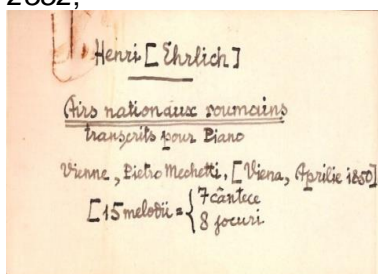 2882,
Henri [Ehrlich]
Airs nationaux roumains
transcrits pour Piano
Vienne, Pietro Mechetti, [Viena, Aprilie 1850]
[15 melodii = { 7 cântece
8 jocuri.